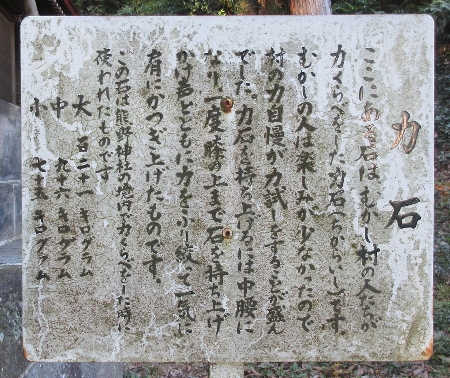 力石
ここにある石はむかし村の人たちが
力くらべをした力石(ちからいし)です。
むかしの人は楽しみが少なかったので
村の力自慢が力試しをすることが盛ん
でした。力石を持ち上げるには中腰に
なり、一度膝の上まで石を持ち上げ
かけ声とともに力をふり絞って一気に
肩にかつぎ上げたものです。
この石は熊野神社の境内で力くらべをした時に
使われたものです。
大 百二十一キログラム
中 九十六キログラム
小 七十五キログラム